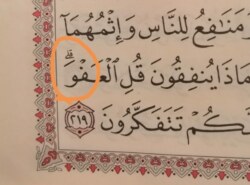 مَنَافِعُ لِلنَّاسِ وَإِثْمُهُمَآ
مَاذَا يُنفِقُونَ قُلِ ٱلْعَفْوَۗ
كُمْ تَتَفَكَّرُونَ ٢١٩